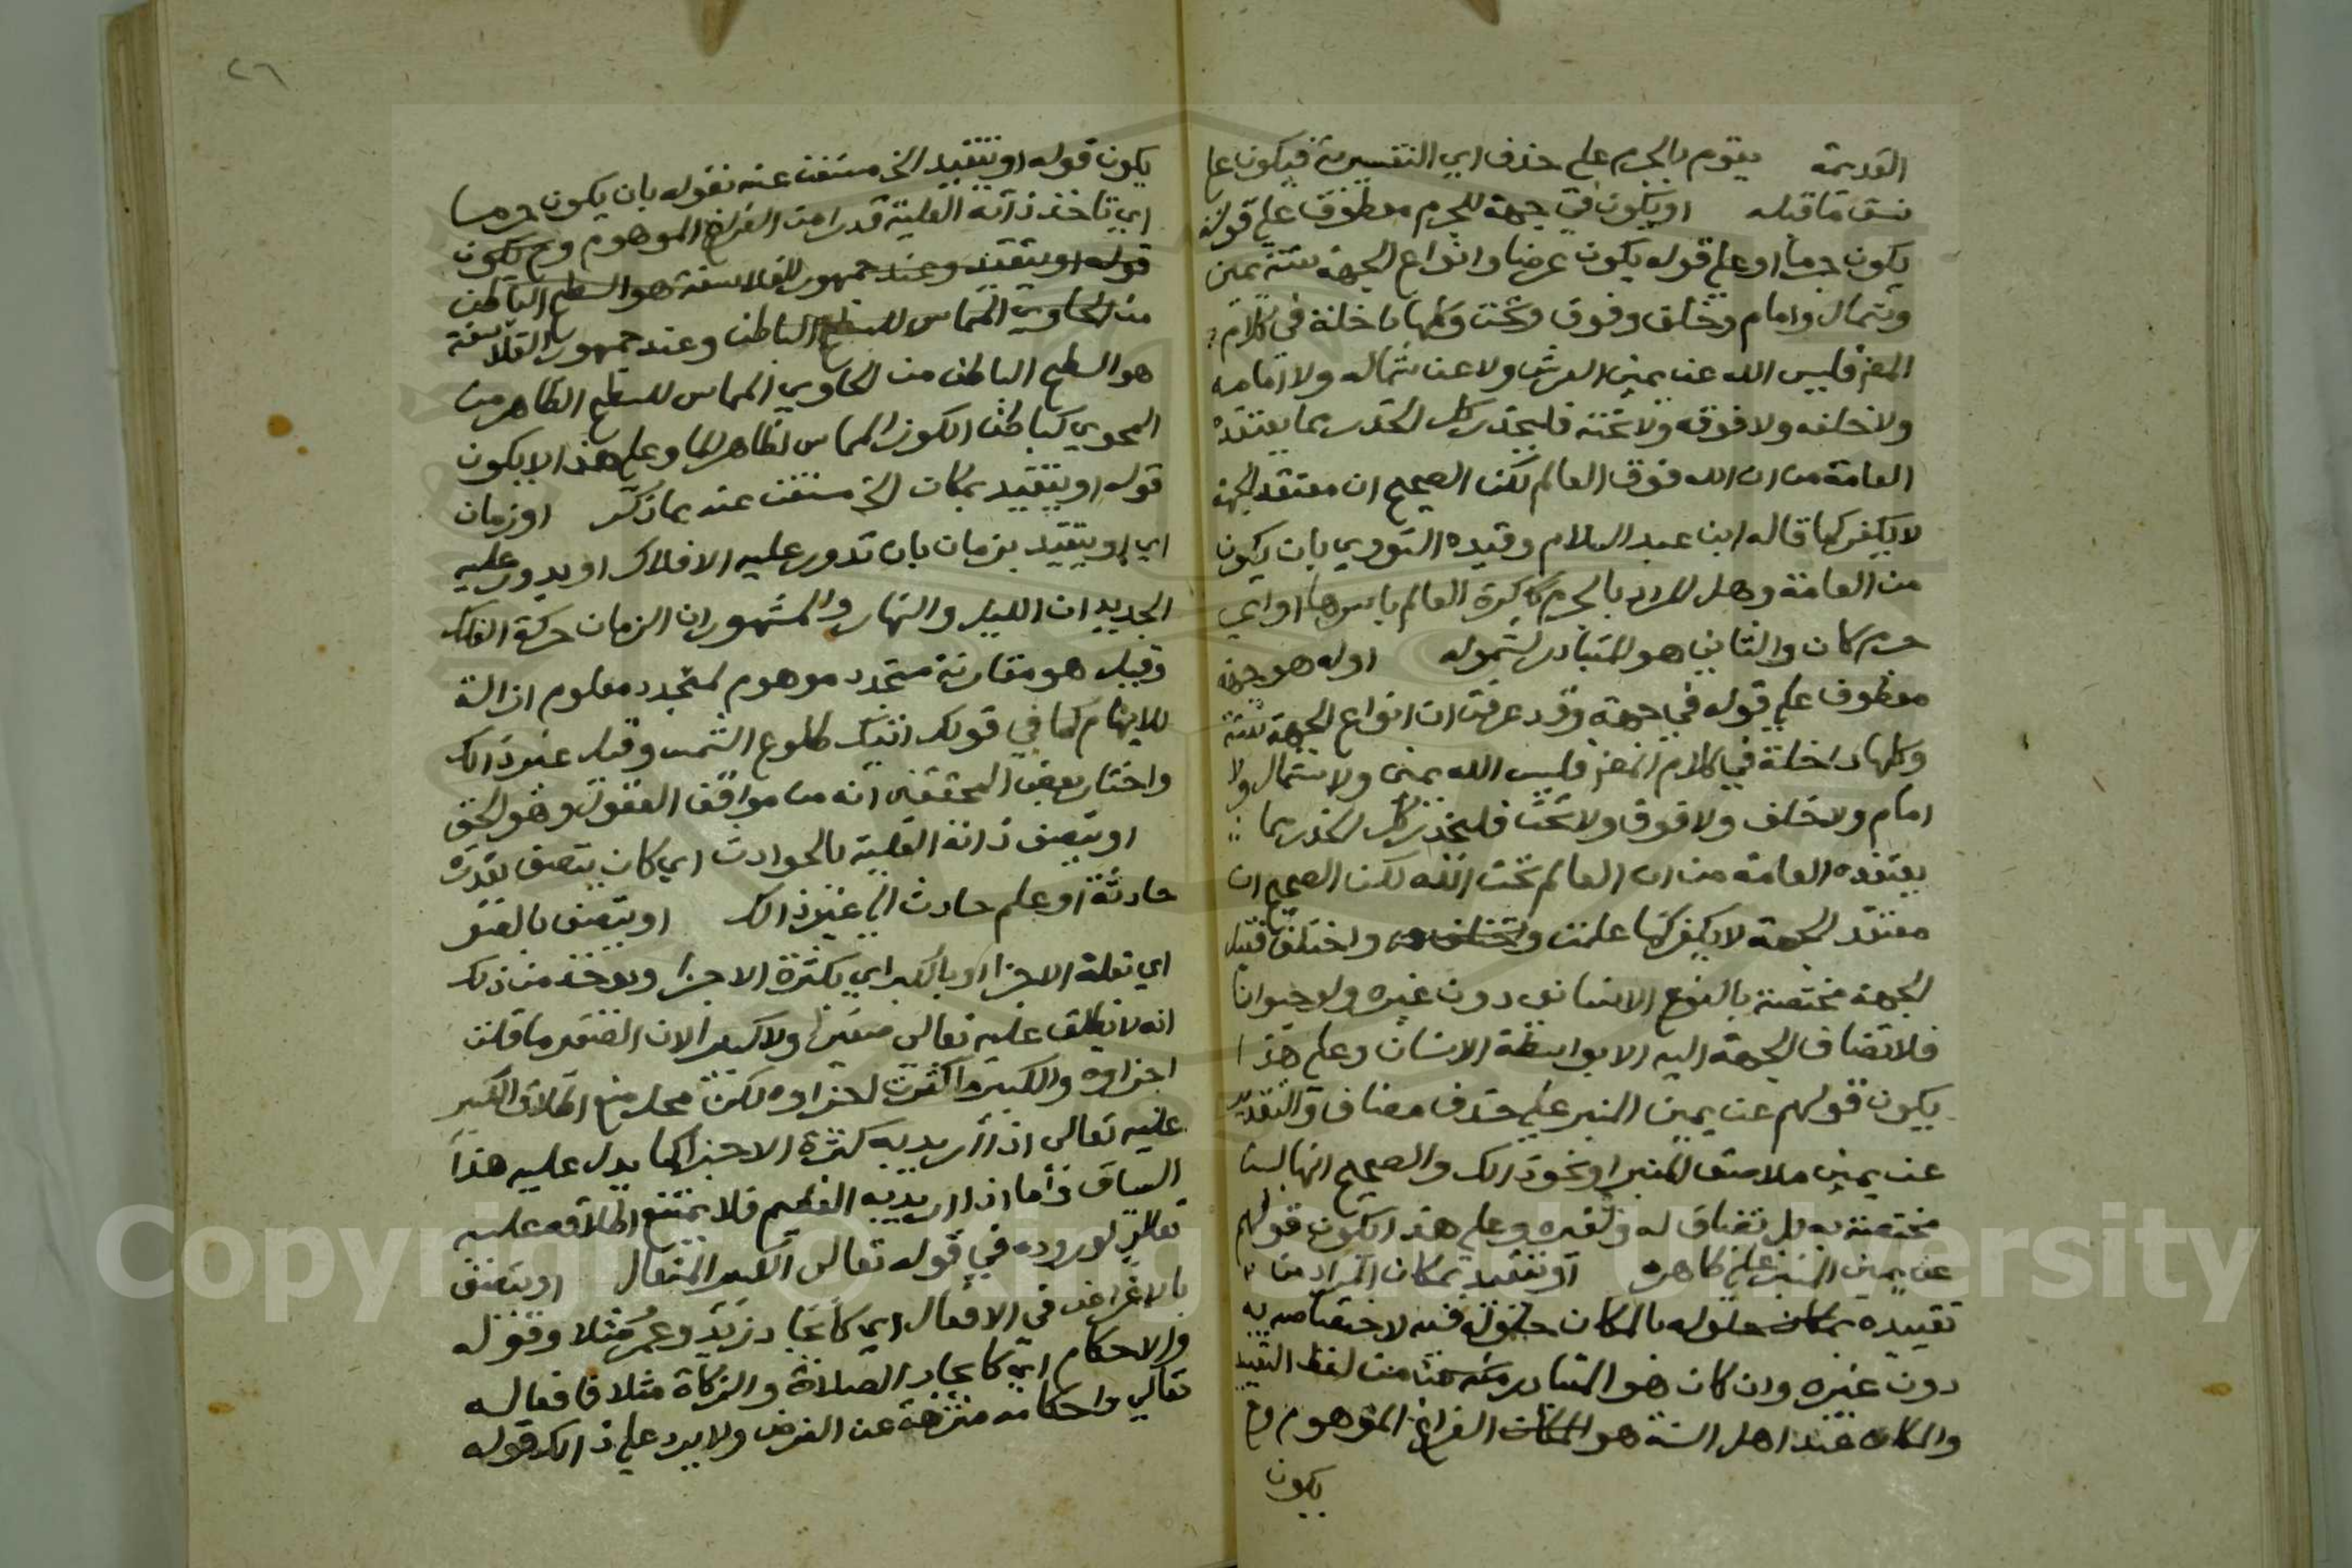 القديمة يقوم بالجرم على حذف اي التفسيرية فيكون على
نسق ما قبله او يكون في جهة للجرم معطوف على قوله
يكون جرما او على قوله يكون عرضا وانواع الجهة ستة يمين
وشمال وامام وخلف وفوق وتحت وكلها داخلة في كلام
المص فليس الله عن يمين العرش ولا عن شماله ولا امامه
ولا خلفه ولا فوقه ولا تحته فليحذر كل الحذر مما يعتقده
العامة من ان الله فوق العالم لكن الصحيح ان معتقد الجهة
لا يكفر كما قاله ابن عبد السلام وقيده النووي بان يكون
من العامة وهل المراد بالجرم كرة العالم باسرها او اي
جرم كان والثاني هو المتبادر لشموله او له هو جهة
معطوف على قوله في جهة وقد عرفت ان انواع الجهة ستة
وكلها داخلة في كلام المص فليس الله يمين ولا شمال ولا
امام ولا خلف ولا فوق ولا تحت فليحذر كل الحذر مما
يعتقده العامة من ان العالم تحت الله لكن الصحيح ان
معتقد الجهة لا يكفر كما علمت واختلف فقيل
الجهة مختصة بالنوع الانساني دون غيره ولو حيوانا
فلا تضاف الجهة اليه الا بواسطة الانسان وعلى هذا
يكون قولهم عن يمين المنبر على حذف مضاف والتقدير
عن يمين ملاصق المنبر او نحو ذالك والصحيح انها ليست
مختصة به بل تضاف له ولغيره وعلى هذا يكون قولهم
عن يمين المنبر على ظاهره او يتقيد بمكان المراد من
تقييده بمكان حلوله بالمكان حلوله فيه لاختصاصه به
دون غيره وان كان هو المتبادر من لفظ التقييد
والمكان عند اهل السنة هو المكان الفراغ الموهوم وح
يكون
٢٦
يكون قوله او يتقيد الخ مستغنى عنه بقوله بان يكون جرما
اي تاخذ ذاته العلية قدرا من الفراغ الموهوم وح يكون
قوله او يتقيد وعند جمهور الفلاسفة هو السطح الباطن
من الحاوي المماس للسطح الباطن وعند جمهور الفلاسفة
هو السطح الباطن من الحاوي المماس للسطح الظاهر من
المحوي كباطن الكوز المماس لظاهر الما وعلى هذا لا يكون
قوله او يتقيد بمكان الخ مستغنى عنه بما ذكر او زمان
اي او يتقيد بزمان بان تدور عليه الافلاك او يدور عليه
الجديدان الليل والنهار والمشهور ان الزمان حركة الفلك
وقيل هو مقارنة متجدد موهوم لمتجدد معلوم ازالة
للابهام كما في قولك اتيك طلوع الشمس وقيل غير ذالك
واختار بعض المحققين انه من مواقف العقول وهو الحق
او يتصف ذاته العلية بالحوادث اي كان يتصف بقدرة
حادثة او علم حادث الى غير ذالك او يتصف بالصغر
اي بقلة الاجزا او بالكبر اي بكثرة الاجزا ويوخذ من ذلك
انه لا يطلق عليه تعالى صغيرا ولا كبيرا لان الصغير ما قلت
اجزاوه والكبير ما كثرت اجزاوه لكن محل منع اطلاق الكبير
عليه تعالى اذا اريد به كثرة الاجزا كما يدل عليه هذا
السياق واما اذا اريد به العظيم فلا يمتنع اطلاقه عليه
تعالى لوروده في قوله تعالى الكبير المتعال او يتصف
بالاغراض في الافعال اي كايجاد زيد وعمر مثلا وقوله
والاحكام اي كايجاد الصلاة والزكاة مثلا فافعاله
تعالى واحكامه منزهة عن الغرض ولا يرد على ذالك قوله